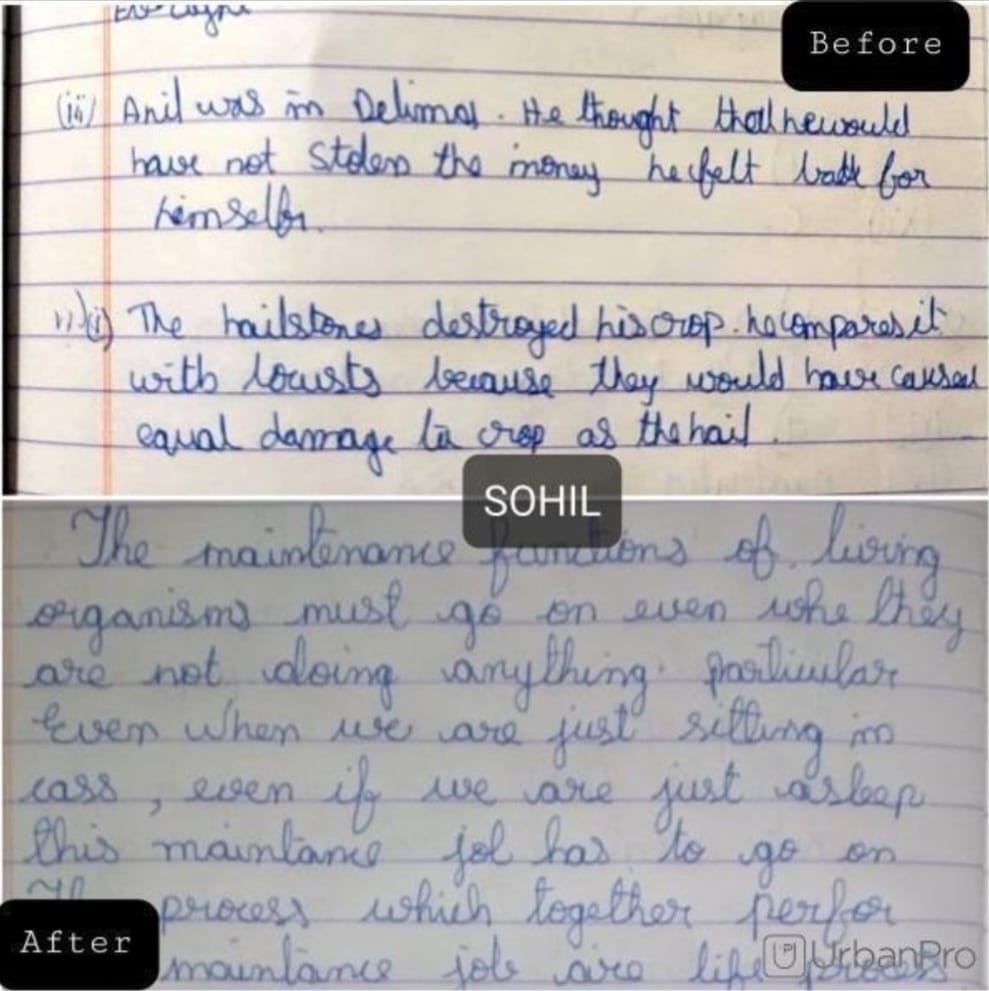 Before
(iii) Anil was in Delima. He thought that he would
have not stolen the money he felt bad for
himself.
11)(i) The hailstones destroyed his crop. he compares it
with locusts because they would have caused
equal damage to crop as the hail.
SOHIL
The maintenance functions of living
organisms must go on even whe they
are not doing anything particular
Even when we are just sitting in
cass, even if we are just asleep
this maintance job has to go on
process which together perfor
After
UrbanPro
maintance job are life process